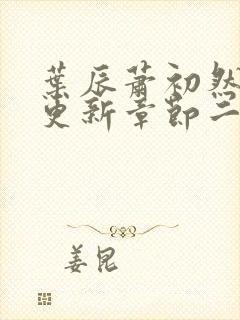 葉辰蕭初然
更新章節二
姜昆